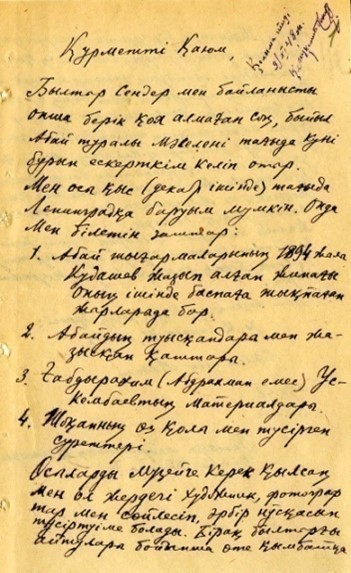 Құрметті Қаюм,
Былтыр сендер мен байланысты
онша берік қоя алмаған соң, быйыл
Абай туралы мәселені тағыда күні
бұрын ескерткім келіп отыр.
Мен осы қыс (декабр ішінде) тағыда
Ленинградқа баруым мүмкін. Онда
мен білетін заттар:
1. Абай шығармаларының 1894 жыл
Кудашев жазып алған жинағы
оның ішінде баспаға шықпаған
жерлерада бар.
2. Абайдың туысқандары мен жа-
зысқан қаттары.
3. Ғабдырахим (Абдрахман емес) Ус-
кембаевтың материалдары.
4. Шоқанның өз қолы мен түсірген
суреттері.
Осыларды Музейге керек қылсаң
мен ол жердегі художник, фотограф
тар мен сөйлесіп, әрбір нұсқасын
түсіртуіме болады. Бірақ былтырғы
айтулары бойынша өте қымбатқа